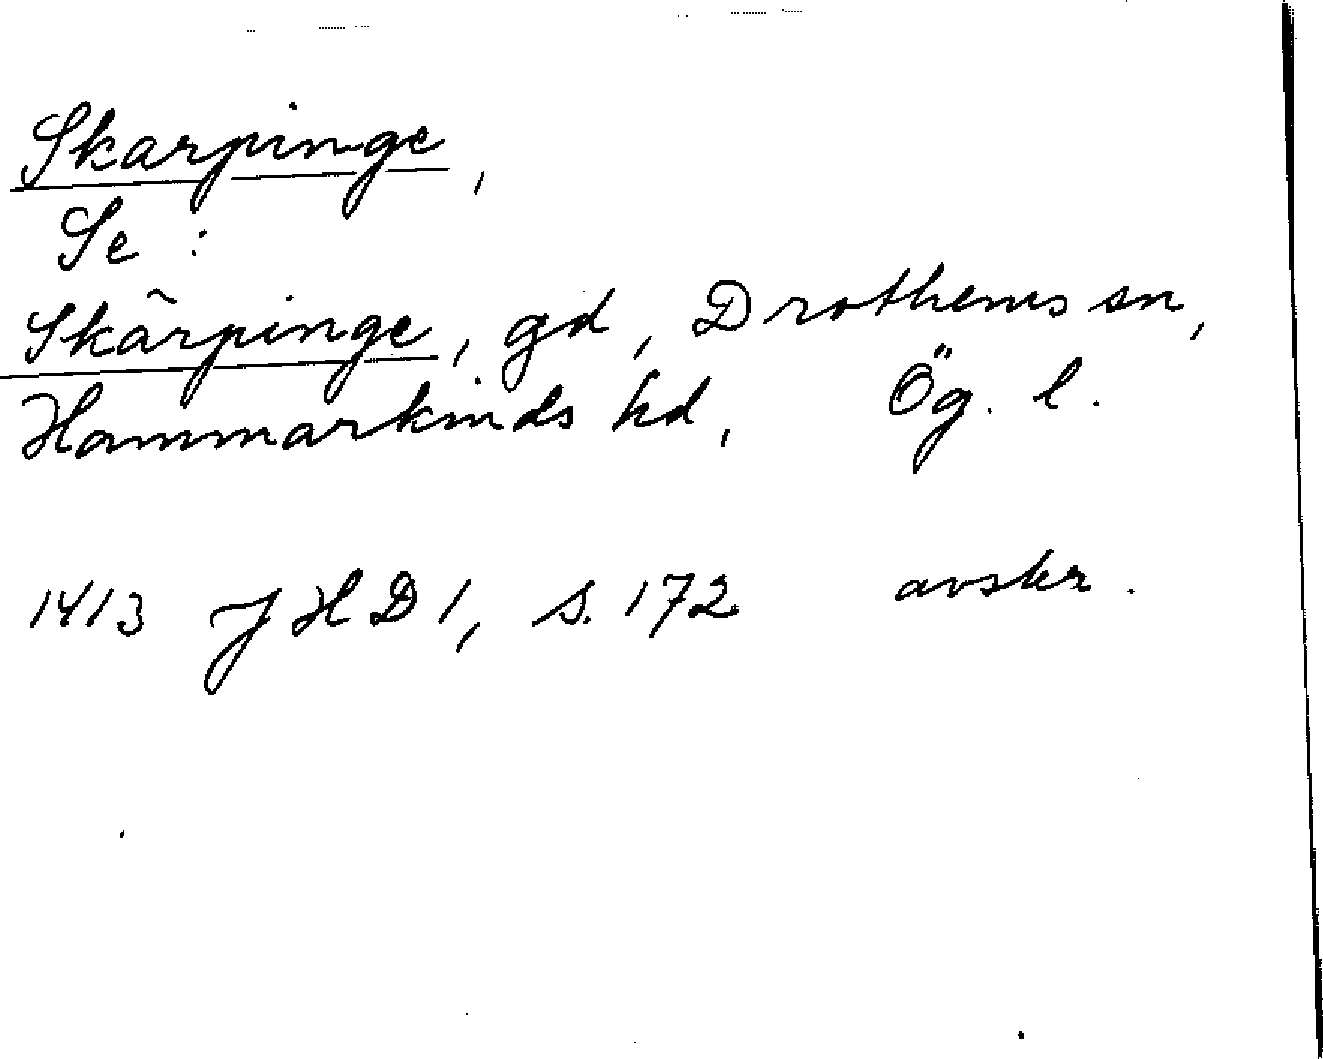 Skarpinge,
Se :
Skärpinge, gd, Drothems sn,
Hammarkinds hd, Ög. l.
1413 JHD 1, s. 172 avskr.